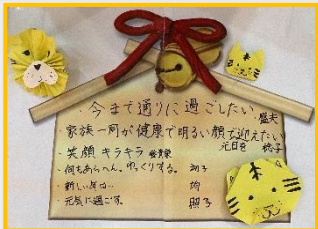 ・今まで通りに過ごしたい 盛夫
・家族一同が健康で明るい顔で迎えたい
元日を 稔子
・笑顔 キラキラ
・何もあらへん。ゆっくりする。
・新しい年
・元気に過ご 照子